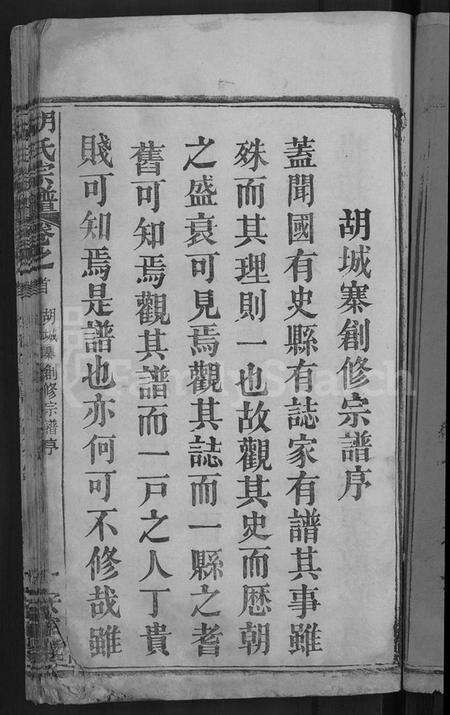 胡城寨創修宗譜序
蓋聞國有史縣有誌家有譜其事雖
殊而其理則一也故觀其史而厯朝
之盛衰可見焉觀其誌而一縣之耆
舊可知焉觀其譜而一戸之人丁貴
賤可知焉是譜也亦何可不修哉雖
胡氏宗譜卷之首
胡城寨創修宗譜序
FamilySearch